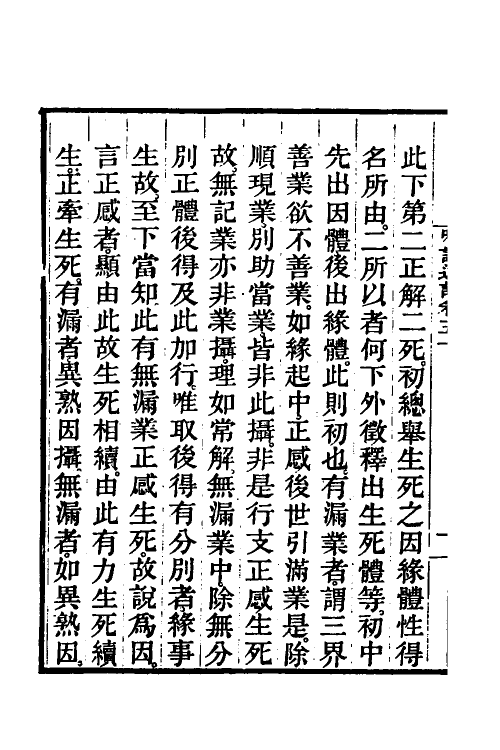 此下第二正解二死。初總舉生死之因緣體性得
名所由。二所以者何下外徵釋出生死體等。初中
先出因體後出緣體。此則初也。有漏業者謂三界
善業欲不善業。如緣起中。正感後世引滿業是。除
順現業別助當業。皆非此攝。非是行支正感生死
故。無記業亦非業攝。理如常解。無漏業中。除無分
別正體後得及此加行。唯取後得有分別者緣事
生故。至下當知此有無漏業正感生死。故說爲因。
言正感者。顯由此故生死相續。由此有力生死續
生。正牽生死。有漏者異熟因攝。無漏者。如異熟因。